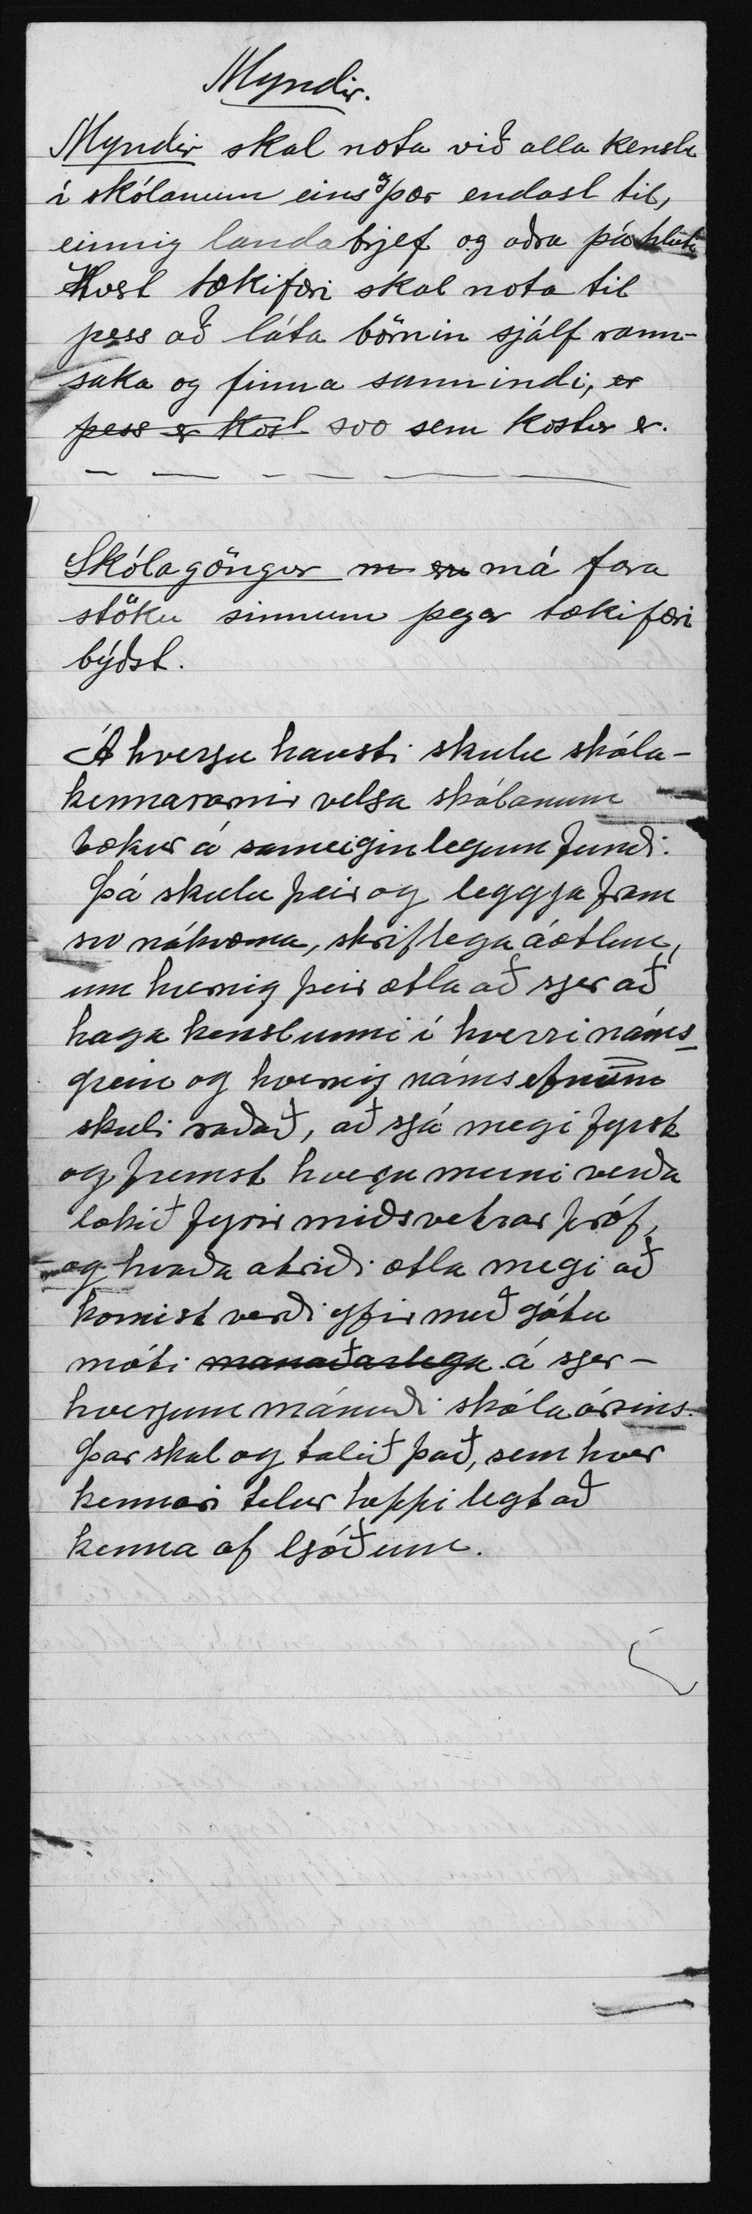 Myndir.
Myndir skal nota við alla kenslu
í skólanum eins og þær endast til,
einnig landabrjef og aðra þá hluti
Hvert tækifæri skal nota til
þess að láta börnin sjálf rann-
saka og finna sannindi, er
þess er kost svo sem kostur er.
Skólagöngur m eru má fara
stöku sinnum þegar tækifæri
býðst.
Á hverju hausti skulu skóla-
kennararnir velja skólanum
bækur á sameiginlegum fundi.
Þá skulu þeir og leggja fram
svo nákvæma, skriflega áætlun,
um hvernig þeir ætla að sjer að
haga kenslunni í hverri náms-
grein og hvernig námsefninu
skuli raðað, að sjá megi fyrst
og fremst hverju muni verða
lokið fyrir miðsvetrar próf,
og hvaða atriði ætla megi að
komist verði yfir með gátu
móti mánaðarlega á sjer-
hverjum mánuði skólaársins.
Þar skal og talið það, sem hver
kennari telur heppilegt að
kenna af ljóðum.